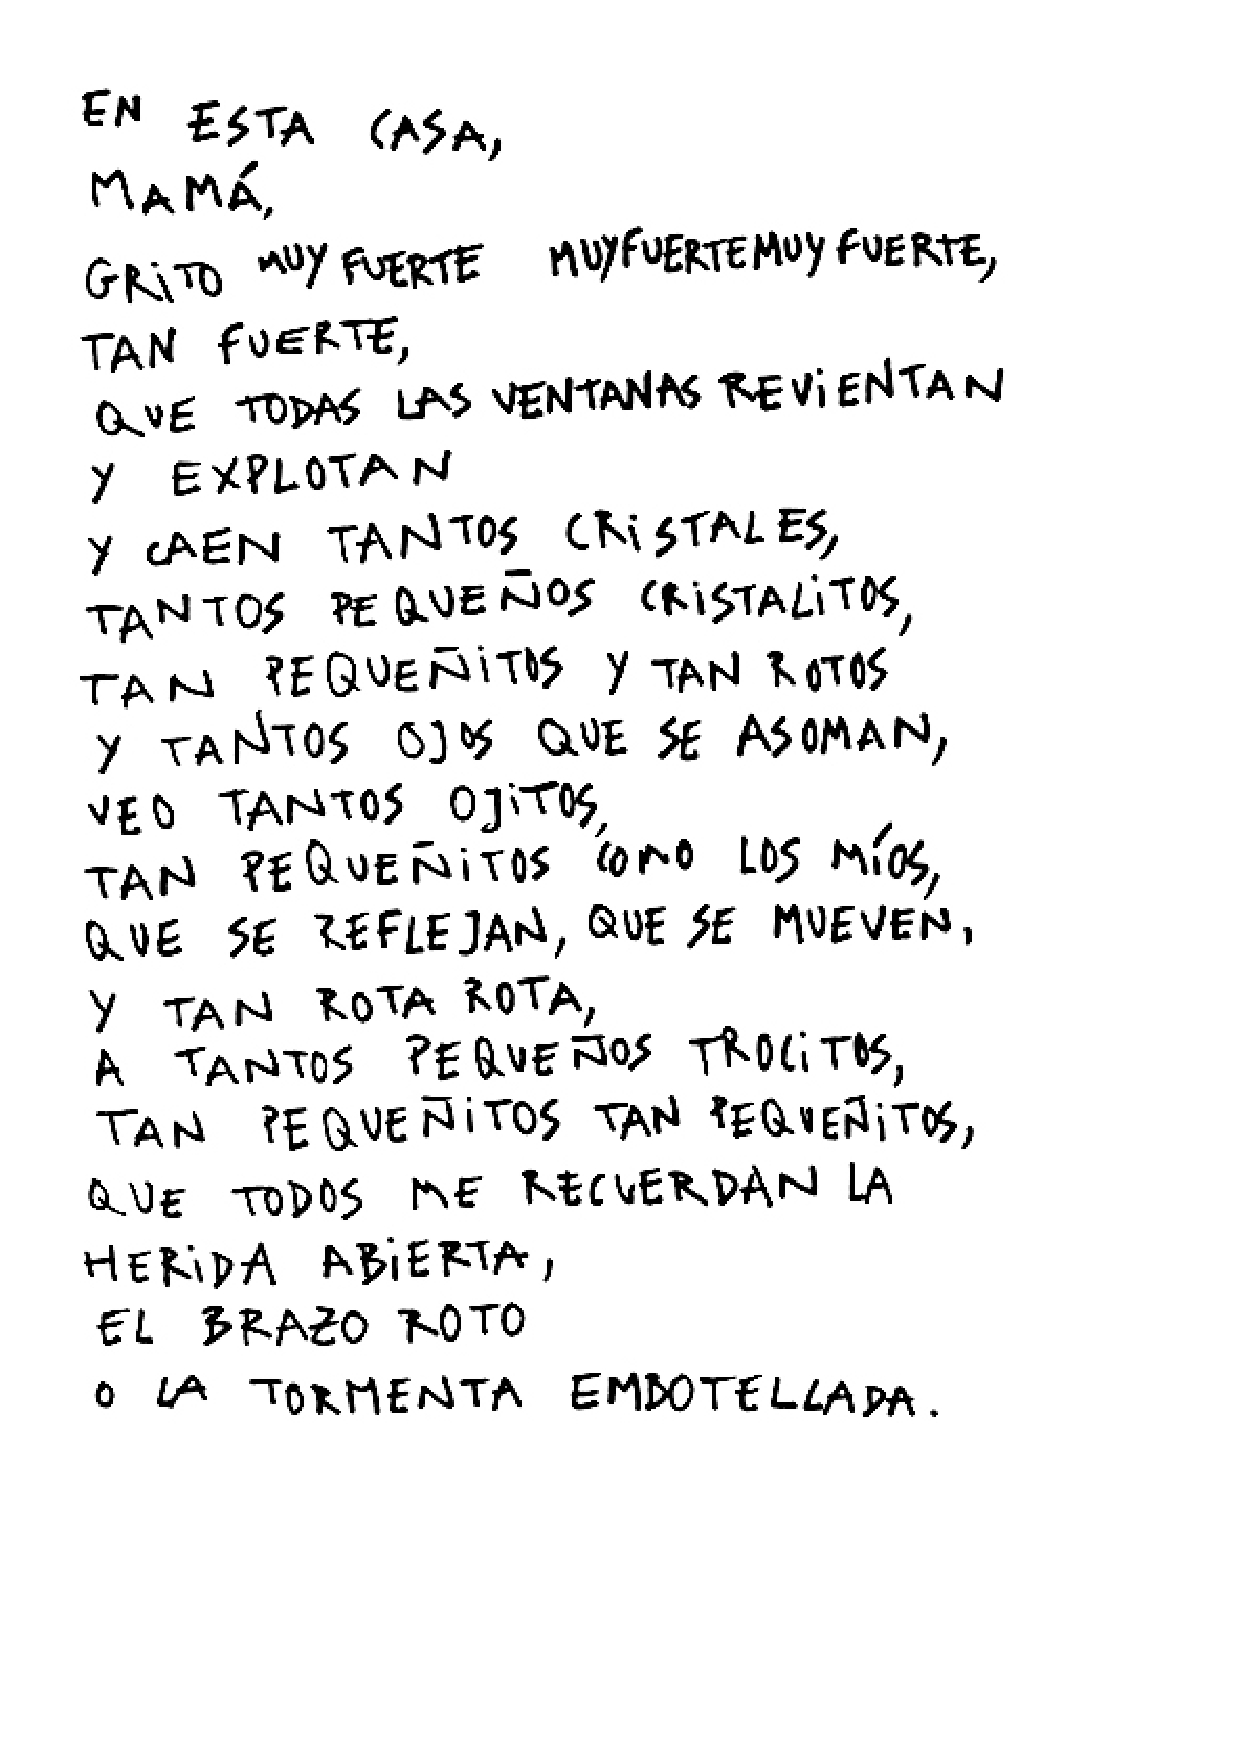 EN ESTA CASA,
MAMÁ,
GRITO MUY FUERTE MUYFUERTEMUY FUERTE,
TAN FUERTE,
QUE TODAS LAS VENTANAS REVIENTAN
Y EXPLOTAN
Y CAEN TANTOS CRISTALES,
TANTOS PEQUEÑOS CRISTALITOS,
TAN PEQUEÑITOS Y TAN ROTOS
Y TANTOS OJOS QUE SE ASOMAN,
VEO TANTOS OJITOS,
TAN PEQUEÑITOS COMO LOS MÍOS,
QUE SE REFLEJAN, QUE SE MUEVEN,
Y TAN ROTA ROTA,
A TANTOS PEQUEÑOS TROCITOS,
TAN PEQUEÑITOS TAN PEQUEÑITOS,
QUE TODOS ME RECUERDAN LA
HERIDA ABIERTA,
EL BRAZO ROTO
O LA TORMENTA EMBOTELLADA.